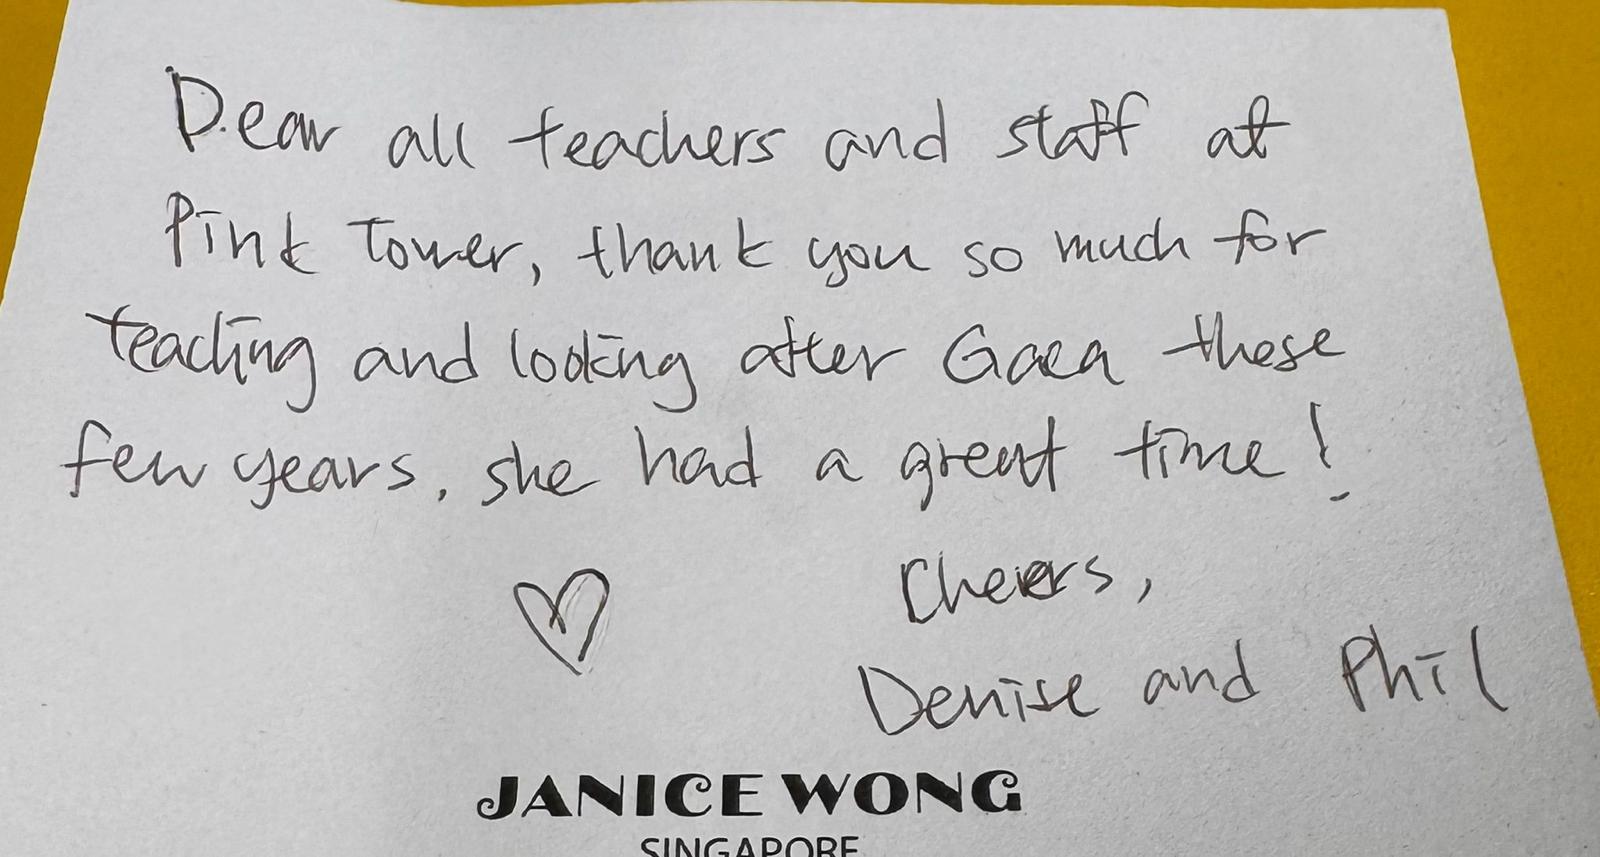 Dear all teachers and staff at
Pink Tower, thank you so much for
teaching and looking after Gaea these
few years, she had a great time!
Cheers,
Denise and Phil
JANICE WONG
SINGAPORE